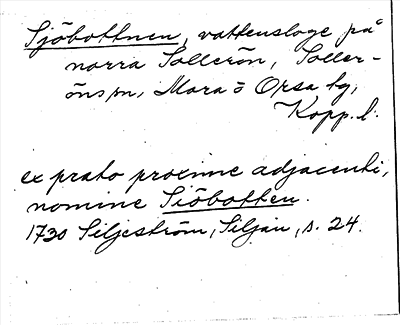 Sjöbottnen, vattensloge på
norra Sollerön, Soller-
öns sn, Mora o Orsa tg,
Kopp. l.
ex prato proxime adjacenti,
nomine Siöbotten.
1730 Siljeström, Siljan, s. 24.